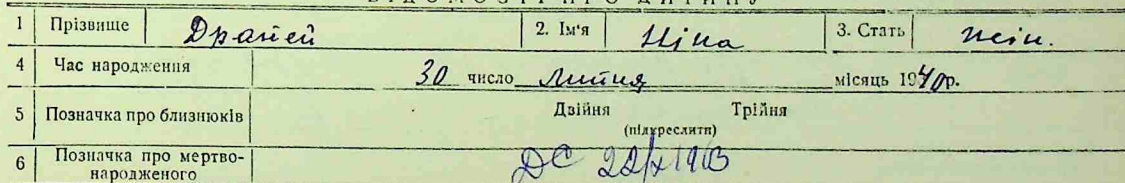 ВІДОМОСТІ ПРО ДИТИНУ
1 Прізвище Драгей 2. Ім'я Ніна 3. Стать жін.
4 Час народження 30 число Липня місяць 1940р.
5 Позначка про близнюків Двійня Трійня
(підкреслити)
6 Позначка про мертво-
народженого ДС 22/X 1963